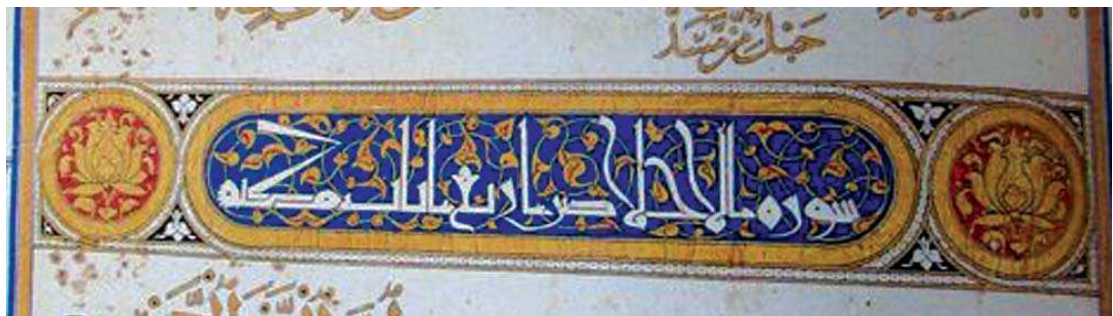 حبل من مسد
سورة الاخلاص اربع ايات مكية